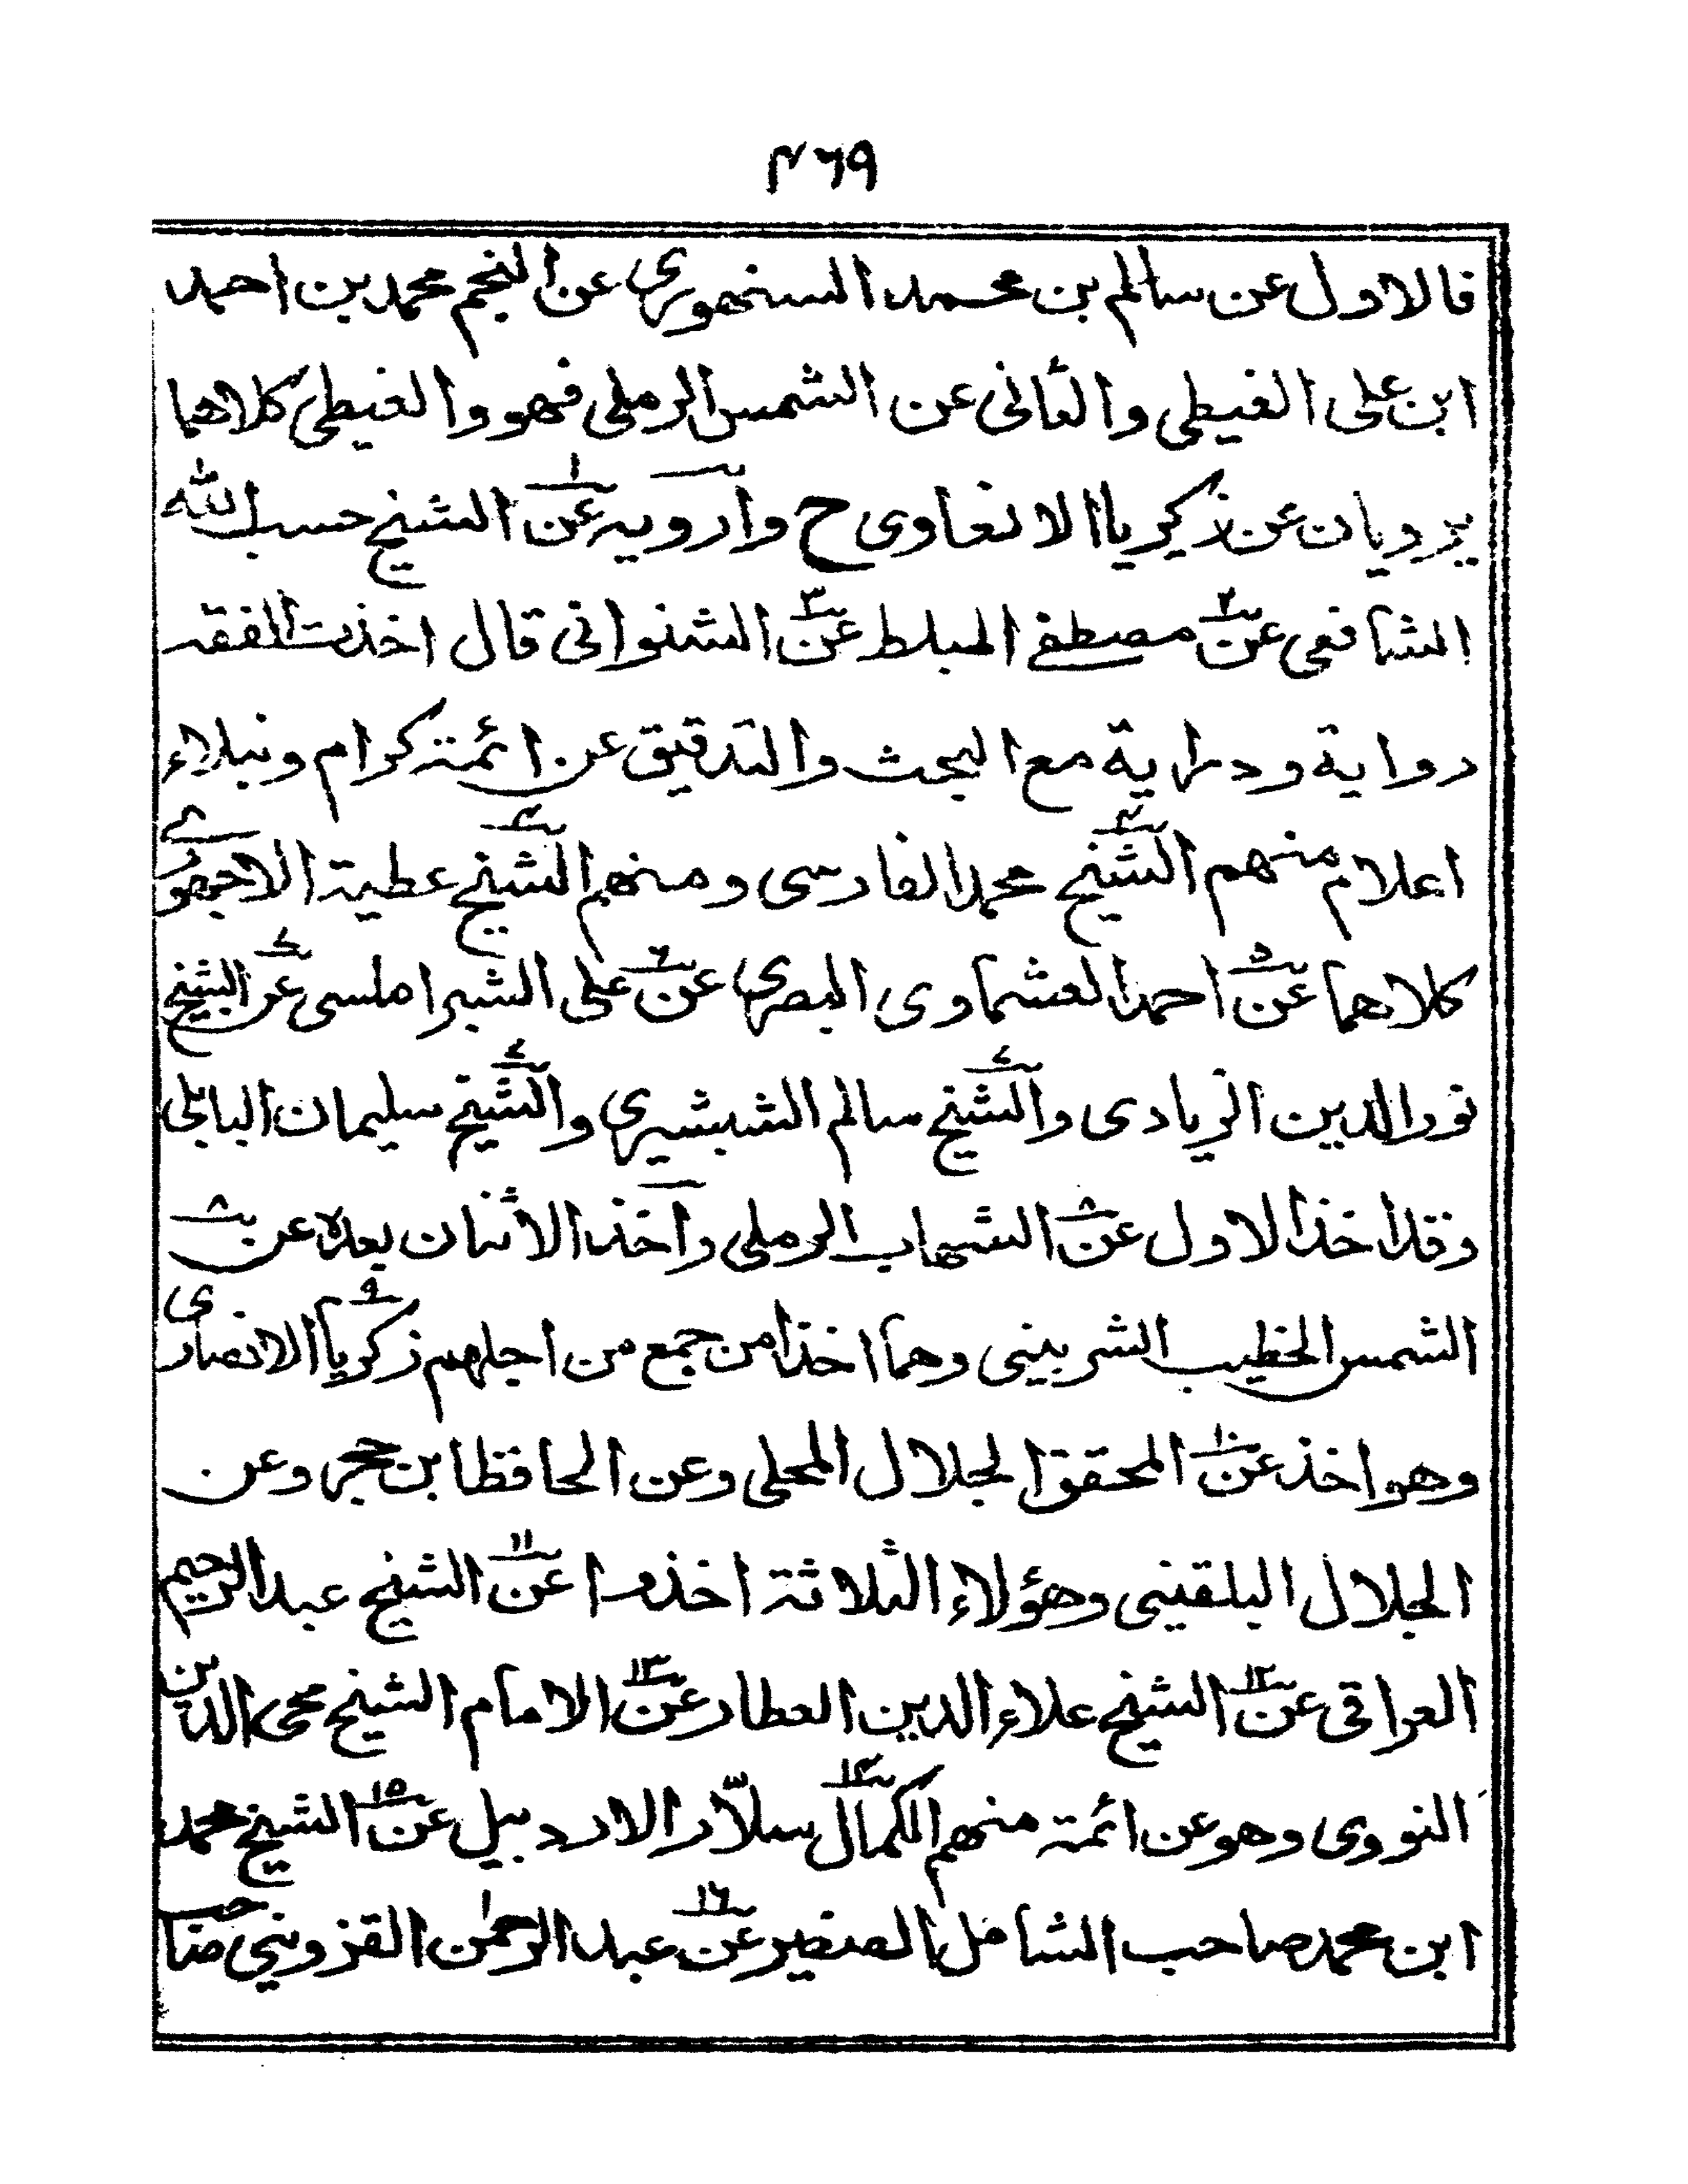 ٤٦٩
فالاول عن سالم بن محمد السنهوري عن النجم محمد بن احمد
ابن على الغيطى والثانى عن الشمس الرملى فهو والغيطى كلاهما
يرويان عن زكريا الانصاوى ح وارويه عن١ الشيخ حسب الله
الشافعى عن٢ مصطفى المبلط عن٣ الشنوانى قال اخذت الفقه
رواية ودراية مع البحث والتدقيق عن ائمة كرام ونبلاء
اعلام منهم الشيخ٤ محمد الفارسى ومنهم الشيخ٤ عطية الاجهورى
كلاهما عن٥ احمد العشماوى البصرى عن٦ على الشبراملسى عن٧ الشيخ
نور الدين الزيادى والشيخ٧ سالم الشبشيرى والشيخ٧ سليمان البابلى
وقد اخذ الاول عن٨ الشهاب الرملى واخذ الاثنان بعده عن٨
الشمس الخطيب الشربينى وهما اخذا من جمع من اجلهم زكريا٩ الانصارى
وهو اخذ عن١٠ المحقق الجلال المحلى وعن الحافظ ابن حجر وعن
الجلال البلقينى وهؤلاء الثلاثة اخذوا عن١١ الشيخ عبد الرحيم
العراقى عن١٢ الشيخ علاء الدين العطار عن١٣ الامام الشيخ محى الدين
النووى وهو عن ائمة منهم الكمال١٤ سلّار الاردبيلى عن١٥ الشيخ محمد
ابن محمد صاحب الشامل الصغير عن١٦ عبد الرحمن القزوينى صاحب